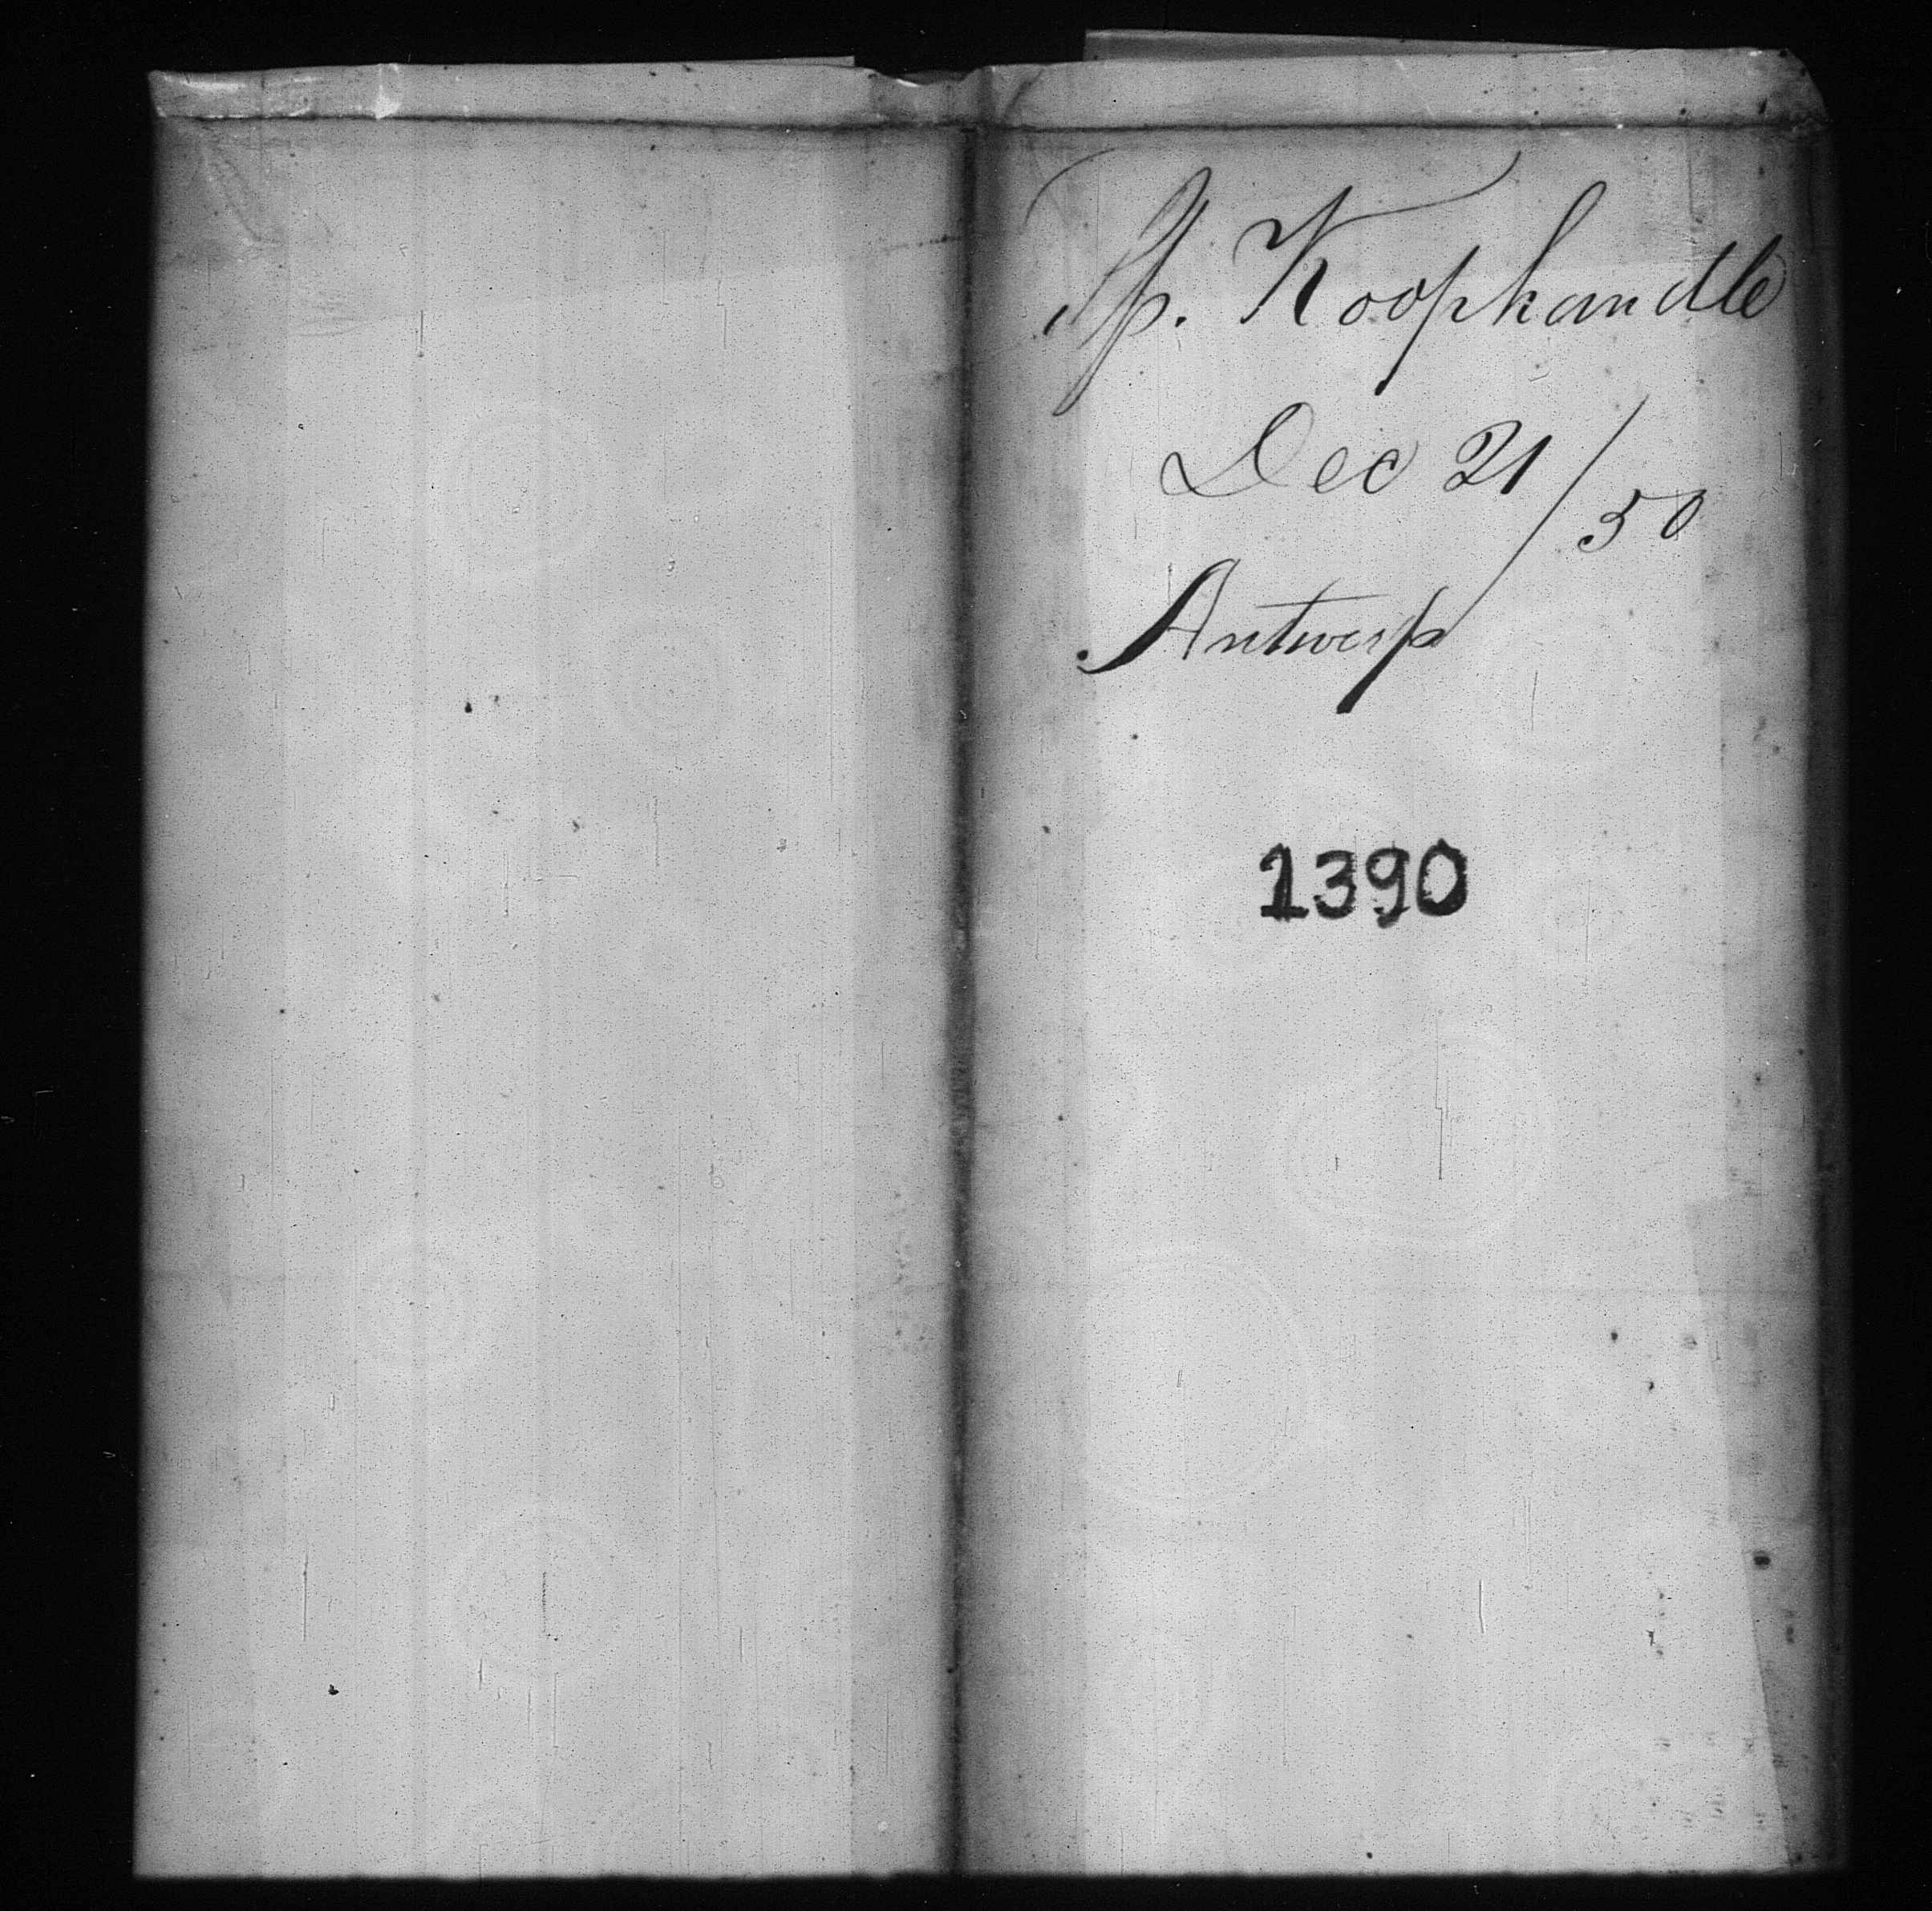 Sp. Koophandle
Dec 21/50
Antwerp
1390